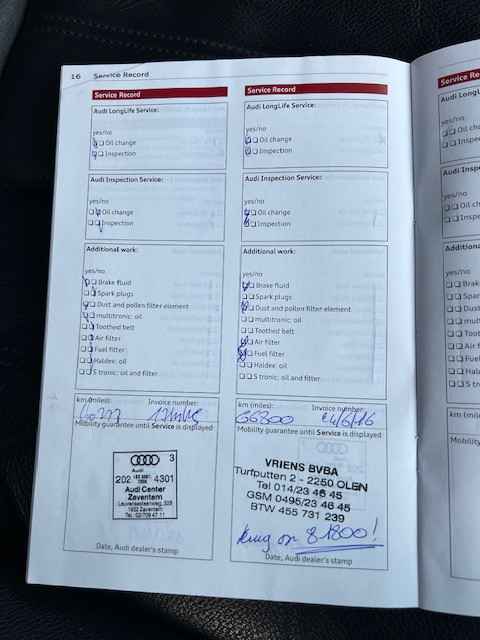 16 Service Record
Service Record
Audi LongLife Service:
yes/no
Oil change
Inspection
Audi Inspection Service:
yes/no
Oil change
Inspection
Additional work:
yes/no
Brake fluid
Spark plugs
Dust and pollen filter element
multitronic: oil
Toothed belt
Air filter
Fuel filter
Haldex: oil
S tronic: oil and filter
km (miles): Invoice number:
Mobility guarantee until Service is displayed
3
Audi
202 4301
Audi Center
Zaventem
1932 Zaventem
Date, Audi dealer's stamp
Service Record
Audi LongLife Service:
yes/no
Oil change
Inspection
Audi Inspection Service:
yes/no
Oil change
Inspection
Additional work:
yes/no
Brake fluid
Spark plugs
Dust and pollen filter element
multitronic: oil
Toothed belt
Air filter
Fuel filter
Haldex: oil
S tronic: oil and filter
km (miles): Invoice number:
66800 24/6/16
Mobility guarantee until Service is displayed
VRIENS BVBA
Turfputten 2 - 2250 OLEN
Tel 014/23 46 45
GSM 0495/23 46 45
BTW 455 731 239
on 81800!
Date, Audi dealer's stamp
Service Re
Audi LongL
yes/no
Oil ch
Inspe
Audi Inspe
yes/no
Oil c
Insp
Additiona
yes/no
Brak
Spar
Dus
mul
Too
Air
Fue
Ha
S tr
km (mil
Mobility